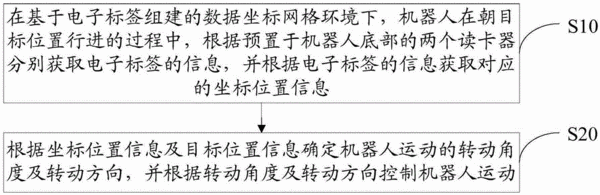 在基于电子标签组建的数据坐标网格环境下，机器人在朝目
标位置行进的过程中，根据预置于机器人底部的两个读卡器
分别获取电子标签的信息，并根据电子标签的信息获取对应
的坐标位置信息
S10
根据坐标位置信息及目标位置信息确定机器人运动的转动角
度及转动方向，并根据转动角度及转动方向控制机器人运动
S20